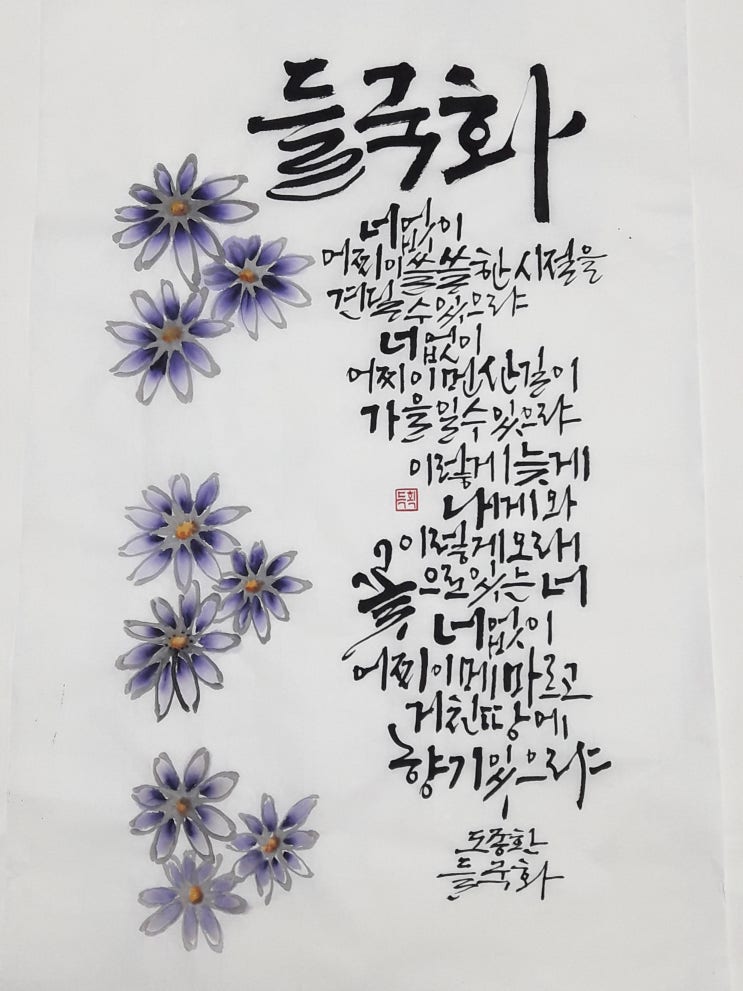 들국화
너 없이
어찌 이 쓸쓸한 시절을
견딜 수 있으랴
너 없이
어찌 이 먼 산길이
가을일 수 있으랴
이렇게 늦게
내게 와
이렇게 오래
꽃으로 있는 너
너 없이
어찌 이 메마르고
거친 땅에
향기 있으랴
도종환
들국화